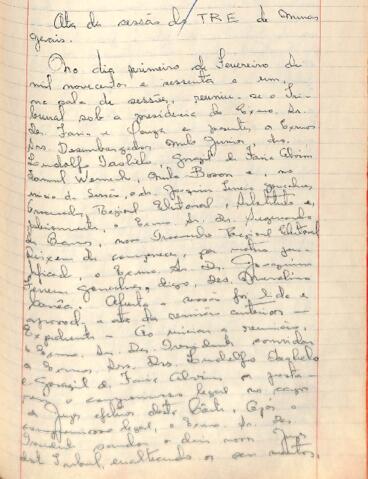 Ata da sessão do TRE de Minas
Gerais.
No dia primeiro de Fevereiro de
mil novecentos e sessenta e um,
na sala de sessões, reuniu-se o Tri-
bunal sob a presidencia do Exmo. Sr.
Des. Faria e Souza e presentes, os Exmos
Srs. Desembargadores Junior, drs.
Lindolfo, Gorazil de Faria Alvim
e no
de Sessão, o dr. Joaquim Ferreira Gonçalves,
Regional Eleitoral, Substituto e,
o Exmo. Sr. Dr.
de Barros, novo Regional Eleitoral
Deixou de comparecer, por motivo jus-
tificado, o Exmo. Sr. Dr. Joaquim
Ferreira Gonçalves, digo, des.
Corrêa. Aberta a sessão foi lida e
aprovada a ata da reunião anterior —
Expediente — Ao iniciar a reunião,
o Exmo. Sr. Des. Presidente convidou
os Exmos. Srs. Drs. Lindolfo
e Gorazil de Faria Alvim a presta-
rem o compromisso legal no cargo
de Juiz efetivo desta Côrte. Após o
compromisso legal, o Exmo. Sr. Des.
Presidente saudou os dois novos Juizes
deste Tribunal, enaltecendo os seus meritos,